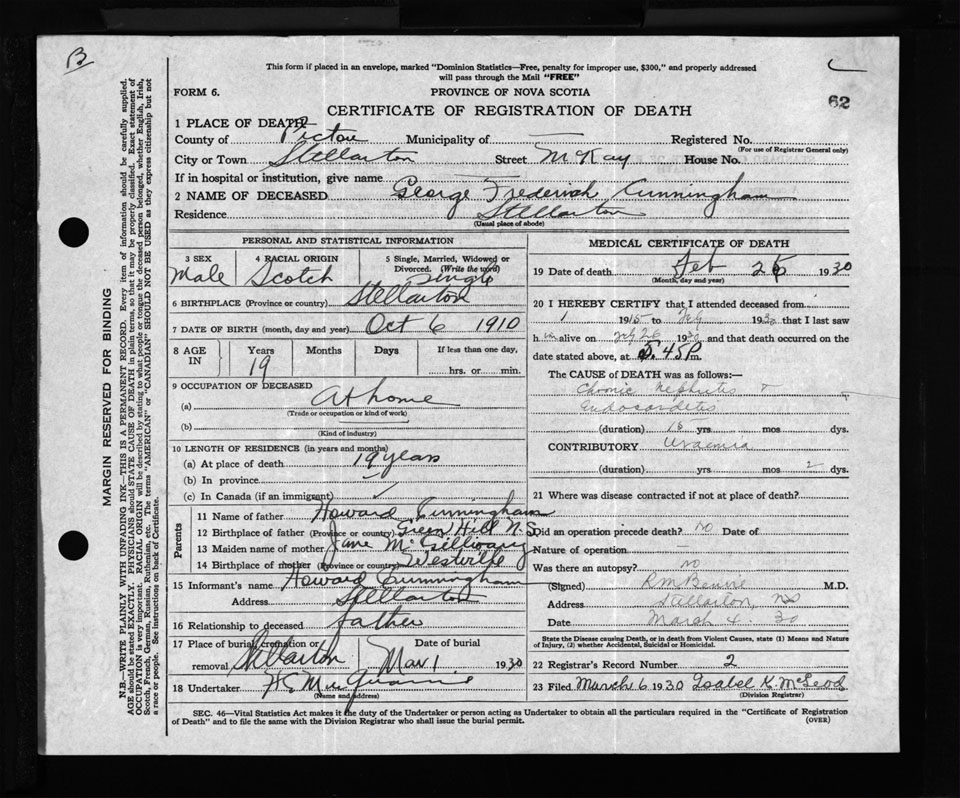 B
This form if placed in an envelope, marked "Dominion Statistics—Free, penalty for improper use, $300," and properly addressed
will pass through the Mail "FREE"
FORM 6.
PROVINCE OF NOVA SCOTIA
62
CERTIFICATE OF REGISTRATION OF DEATH
1 PLACE OF DEATH
County of Pictou Municipality of — Registered No.
(For use of Registrar General only)
City or Town Stellarton Street McKay House No.
If in hospital or institution, give name
2 NAME OF DECEASED George Frederick Cunningham
Residence Stellarton
(Usual place of abode)
PERSONAL AND STATISTICAL INFORMATION
3 SEX 4 RACIAL ORIGIN 5 Single, Married, Widowed or
Divorced. (Write the word)
Male Scotch Single
6 BIRTHPLACE (Province or country) Stellarton
7 DATE OF BIRTH (month, day and year) Oct 6 1910
8 AGE IN Years Months Days If less than one day,
19 hrs. or min.
9 OCCUPATION OF DECEASED
(a) At home
(Trade or occupation or kind of work)
(b)
(Kind of industry)
10 LENGTH OF RESIDENCE (in years and months)
(a) At place of death 19 years
(b) In province ✓
(c) In Canada (if an immigrant) ✓
Parents
11 Name of father Howard Cunningham
12 Birthplace of father (Province or country) Green Hill N.S.
13 Maiden name of mother Jane McGillivary
14 Birthplace of mother (Province or country) Westville
15 Informant's name Howard Cunningham
Address Stellarton
16 Relationship to deceased father
17 Place of burial, cremation or Date of burial
removal Stellarton Mar 1 1930
18 Undertaker
(Name and address)
MEDICAL CERTIFICATE OF DEATH
19 Date of death Feb 26 1930
(Month, day and year)
20 I HEREBY CERTIFY that I attended deceased from
1 1915 to 1930 that I last saw
h im alive on 26 1930 and that death occurred on the
date stated above, at 5.45 P m.
The CAUSE of DEATH was as follows:—
Chronic Nephritis &
Endocarditis
(duration) 15 yrs mos dys.
CONTRIBUTORY Uraemia
(duration) yrs mos 2 dys.
21 Where was disease contracted if not at place of death?
Did an operation precede death? NO Date of
Nature of operation —
Was there an autopsy? NO
(Signed) M.D.
Address Stellarton, NS
Date March 4. 30
State the Disease causing Death, or in death from Violent Causes, state (1) Means and Nature
of Injury, (2) whether Accidental, Suicidal or Homicidal.
22 Registrar's Record Number 2
23 Filed March 6 1930 Isabel K. McLeod
(Division Registrar)
SEC. 46—Vital Statistics Act makes it the duty of the Undertaker or person acting as Undertaker to obtain all the particulars required in the "Certificate of Registration
of Death" and to file the same with the Division Registrar who shall issue the burial permit. (OVER)
MARGIN RESERVED FOR BINDING
N.B.—WRITE PLAINLY WITH UNFADING INK—THIS IS A PERMANENT RECORD. Every item of information should be carefully supplied.
AGE should be stated EXACTLY. PHYSICIANS should STATE CAUSE OF DEATH in plain terms, so that it may be properly classified. Exact statement of
OCCUPATION is very important. RACIAL ORIGIN will be described by stating to what people or tongue the deceased person belonged, whether English, Irish,
Scotch, French, German, Russian, Ruthenian, etc. The terms "AMERICAN" or "CANADIAN" SHOULD NOT BE USED as they express citizenship but not
a race or people. See instructions on back of Certificate.